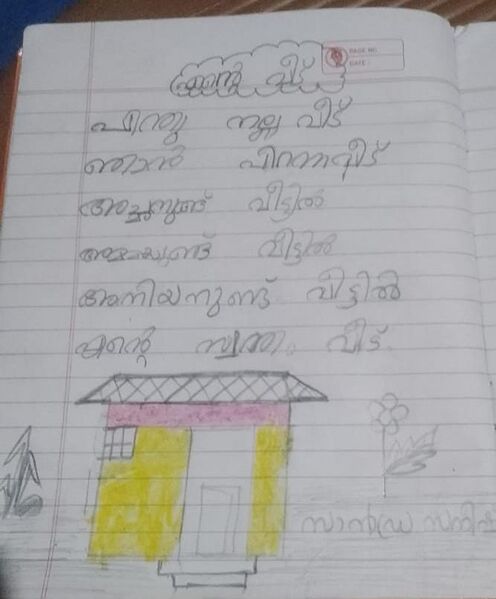 എന്റെ വീട്
PAGE NO.
DATE:
എന്തു നല്ല വീട്
ഞാൻ പിറന്നവീട്
അച്ഛനുണ്ട് വീട്ടിൽ
അമ്മയുണ്ട് വീട്ടിൽ
അനിയനുണ്ട് വീട്ടിൽ
എന്റെ സ്വന്തം വീട്.
സാൻഡ്ര